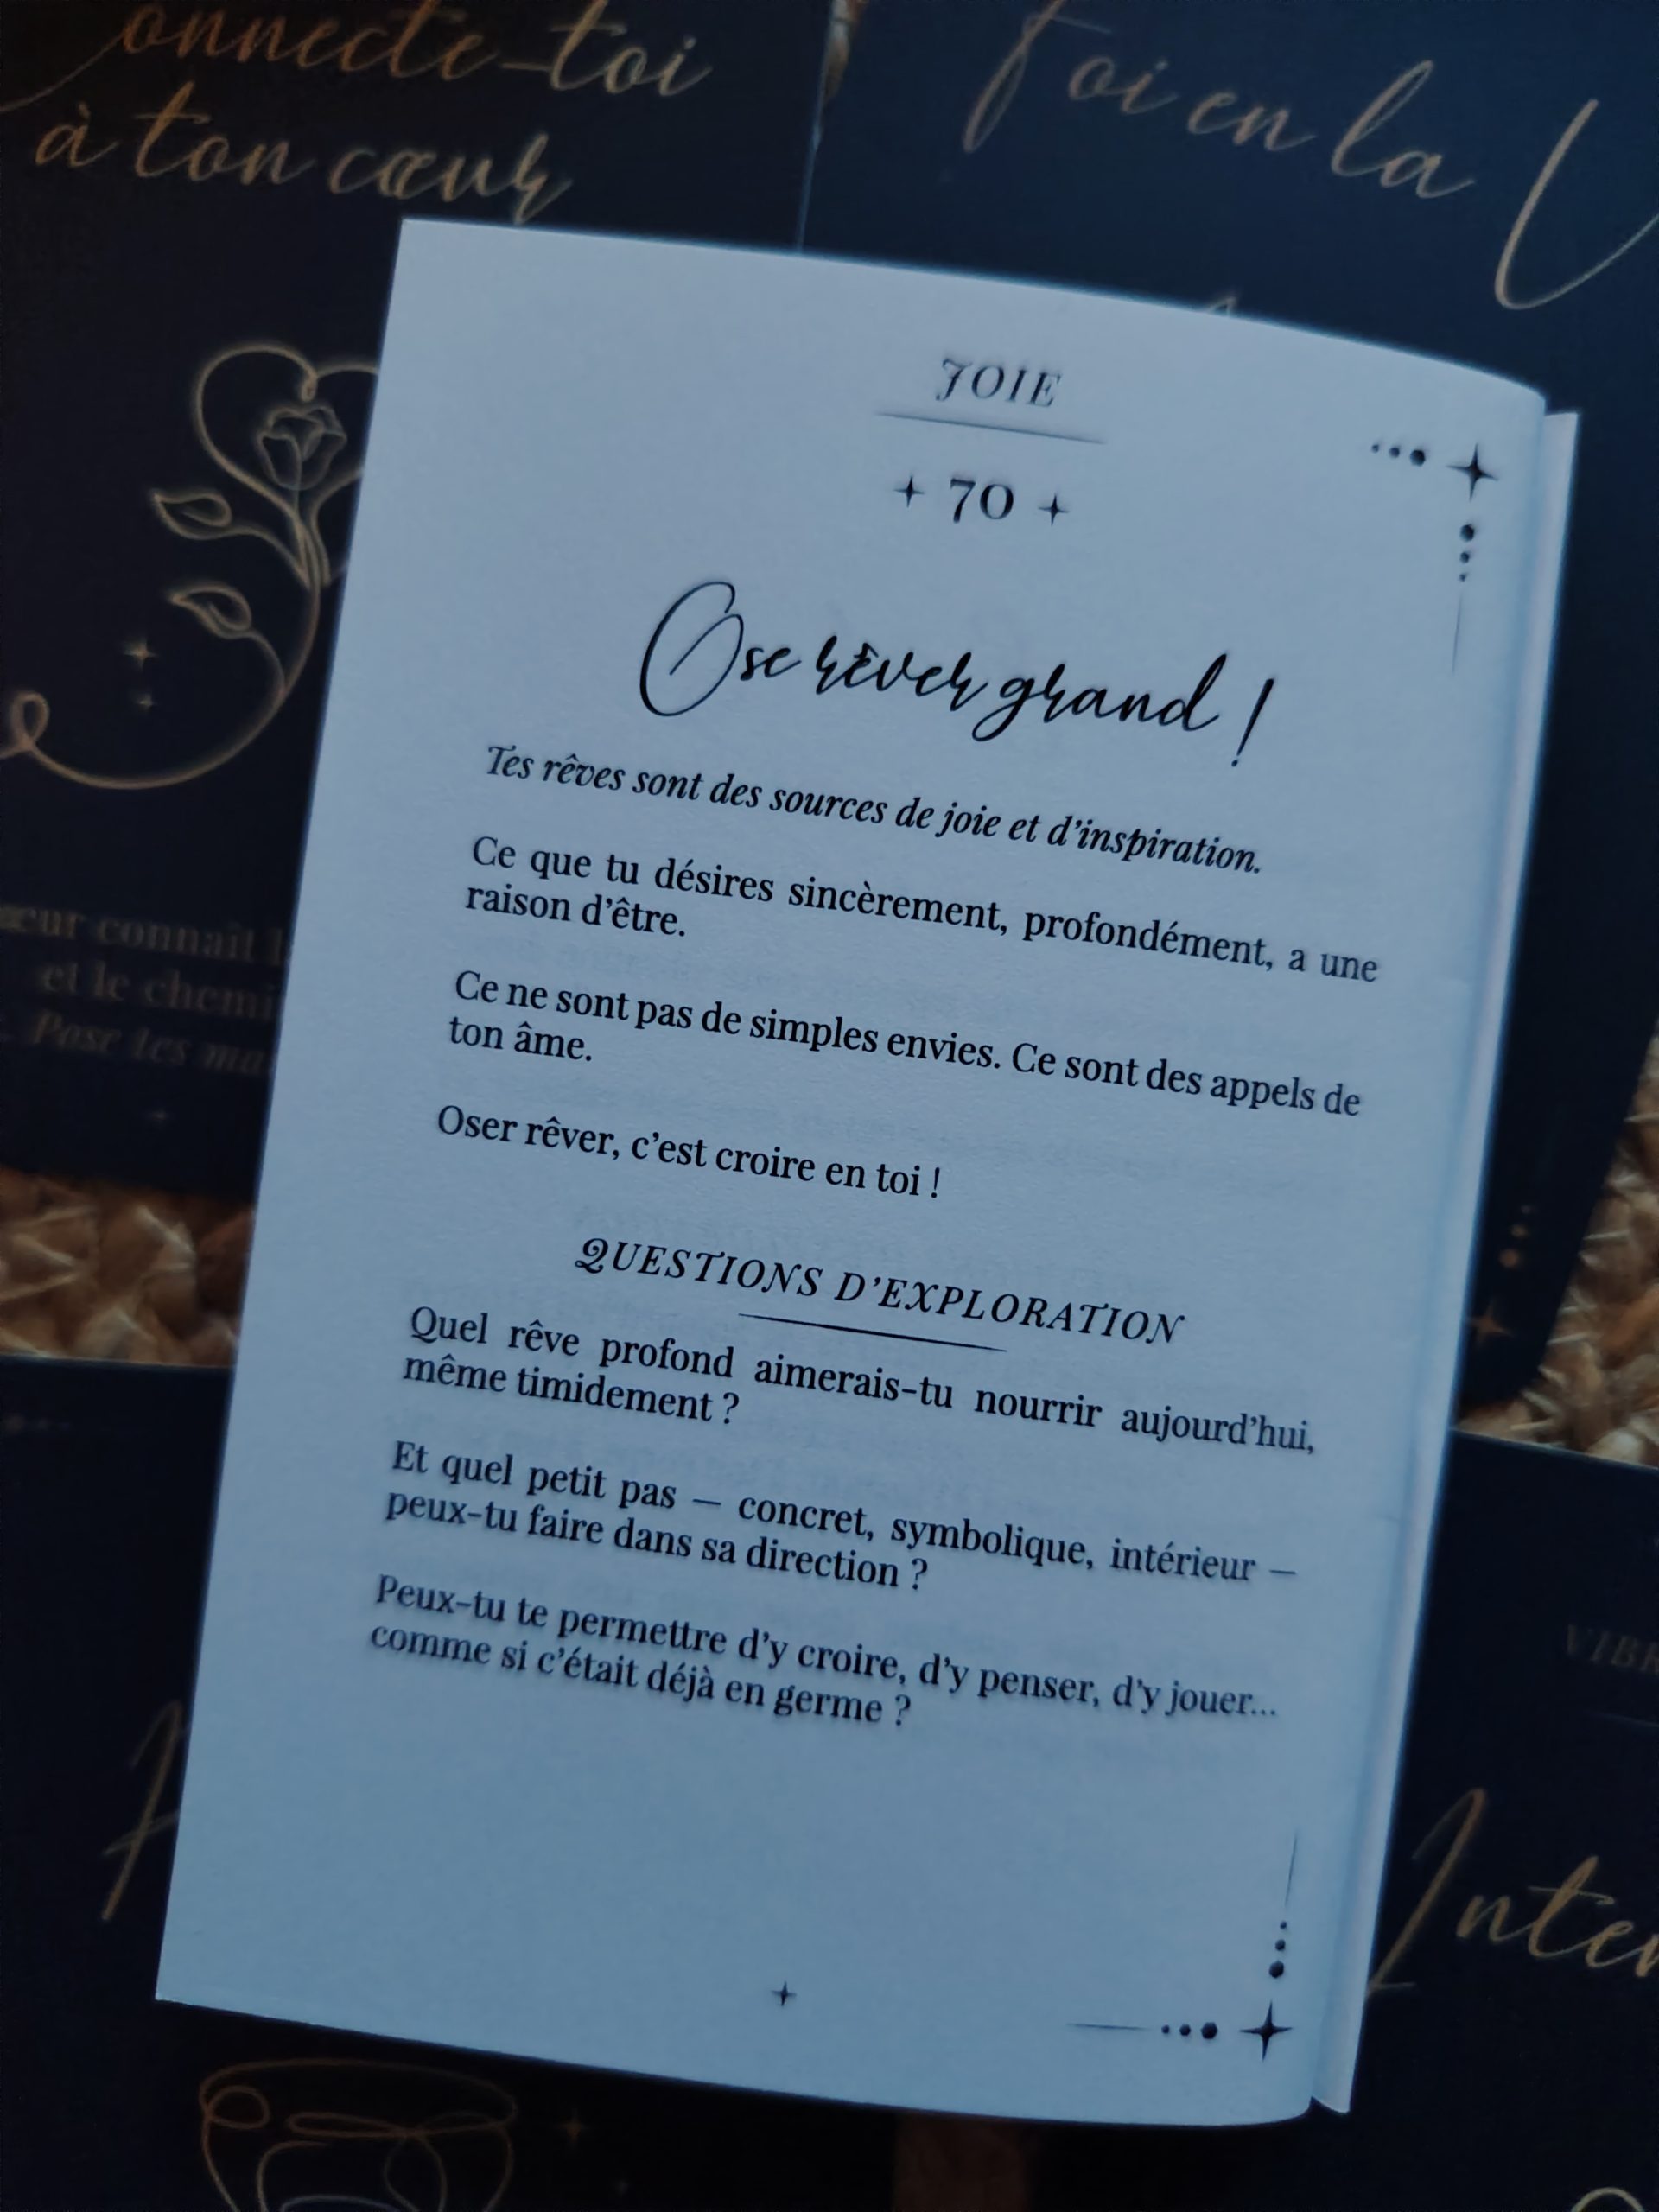 onnecte-toi
à ton cœur
Foi en la V
JOIE
70
Ose rêver grand !
Tes rêves sont des sources de joie et d'inspiration.
Ce que tu désires sincèrement, profondément, a une
raison d'être.
Ce ne sont pas de simples envies. Ce sont des appels de
ton âme.
Oser rêver, c'est croire en toi !
QUESTIONS D'EXPLORATION
Quel rêve profond aimerais-tu nourrir aujourd'hui,
même timidement ?
Et quel petit pas — concret, symbolique, intérieur —
peux-tu faire dans sa direction ?
Peux-tu te permettre d'y croire, d'y penser, d'y jouer...
comme si c'était déjà en germe ?
œur connaît l
et le chemi
Pose tes ma
VIBR
Inter